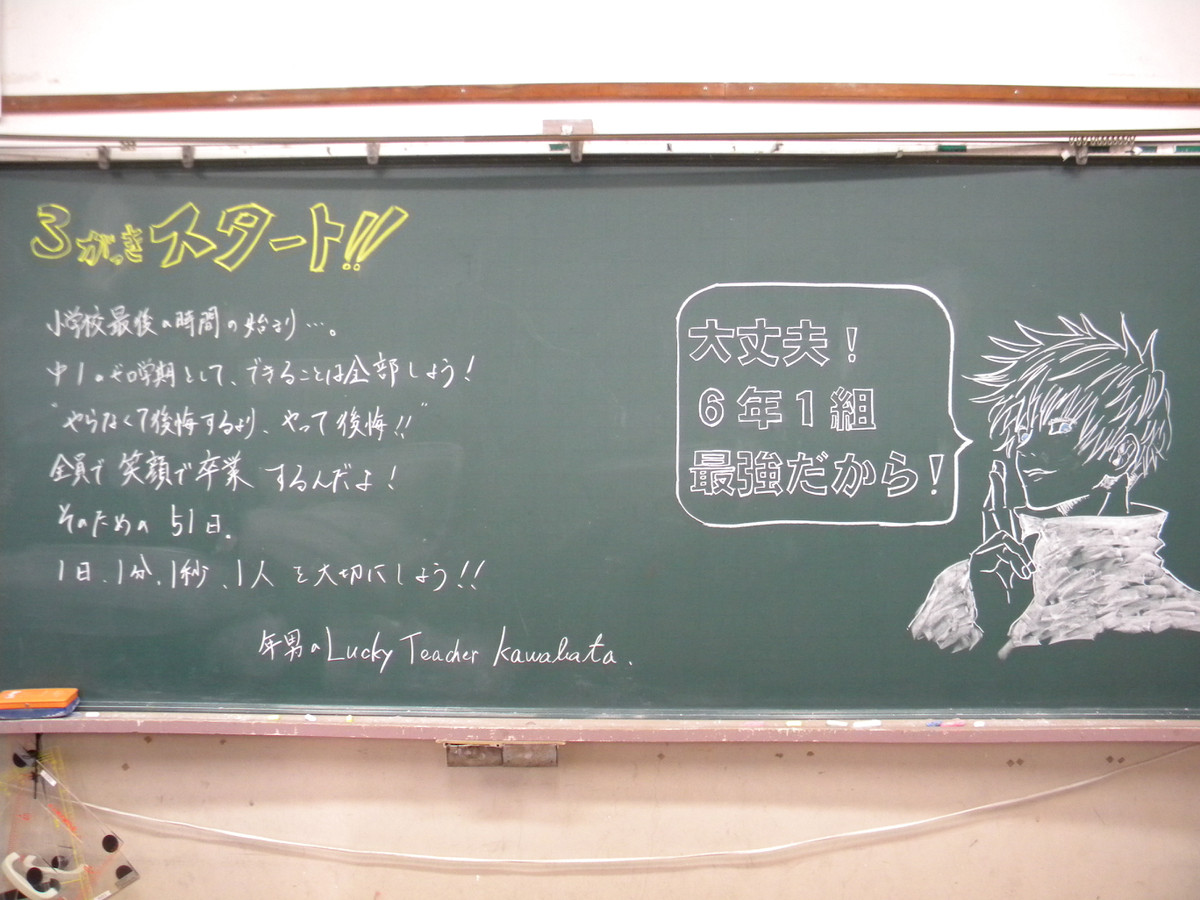 3がっきスタート!!
小学校最後の時間の始まり…。
中1のゼロ学期として、できることは全部しよう!
"やらなくて後悔するより、やって後悔!!"
全員で笑顔で卒業するんだよ!
そのための51日。
1日、1分、1秒、1人を大切にしよう!!
年男のLucky Teacher kawabata.
大丈夫!
6年1組
最強だから!